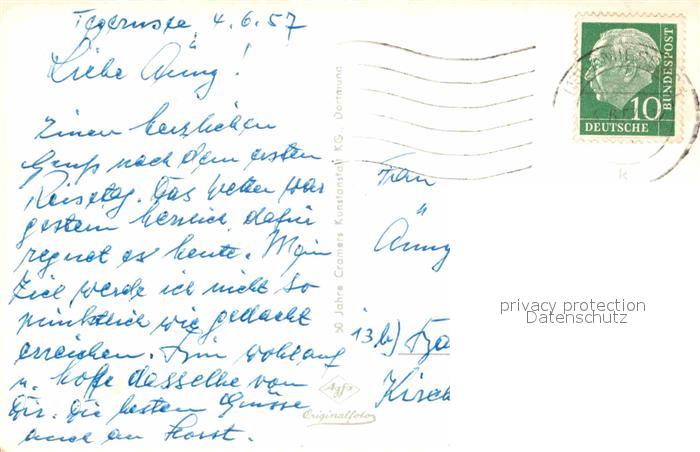 Tegernsee, 4.6.57
Liebe Änny!
Einen herzlichen
Gruß nach dem ersten
Reisetag. Das Wetter war
gestern herrlich, dafür
regnet es heute. Mein
Ziel werde ich nicht so
pünktlich wie gedacht
erreichen. Bin wohlauf
u. hoffe dasselbe von
Dir. Die besten Grüsse
auch an Horst.
50 Jahre Cramers Kunstanstalt KG. Dortmund
Agfa
Originalfoto
10
DEUTSCHE
BUNDESPOST
k
Frau
Änny
13b)
Kirch
privacy protection
Datenschutz